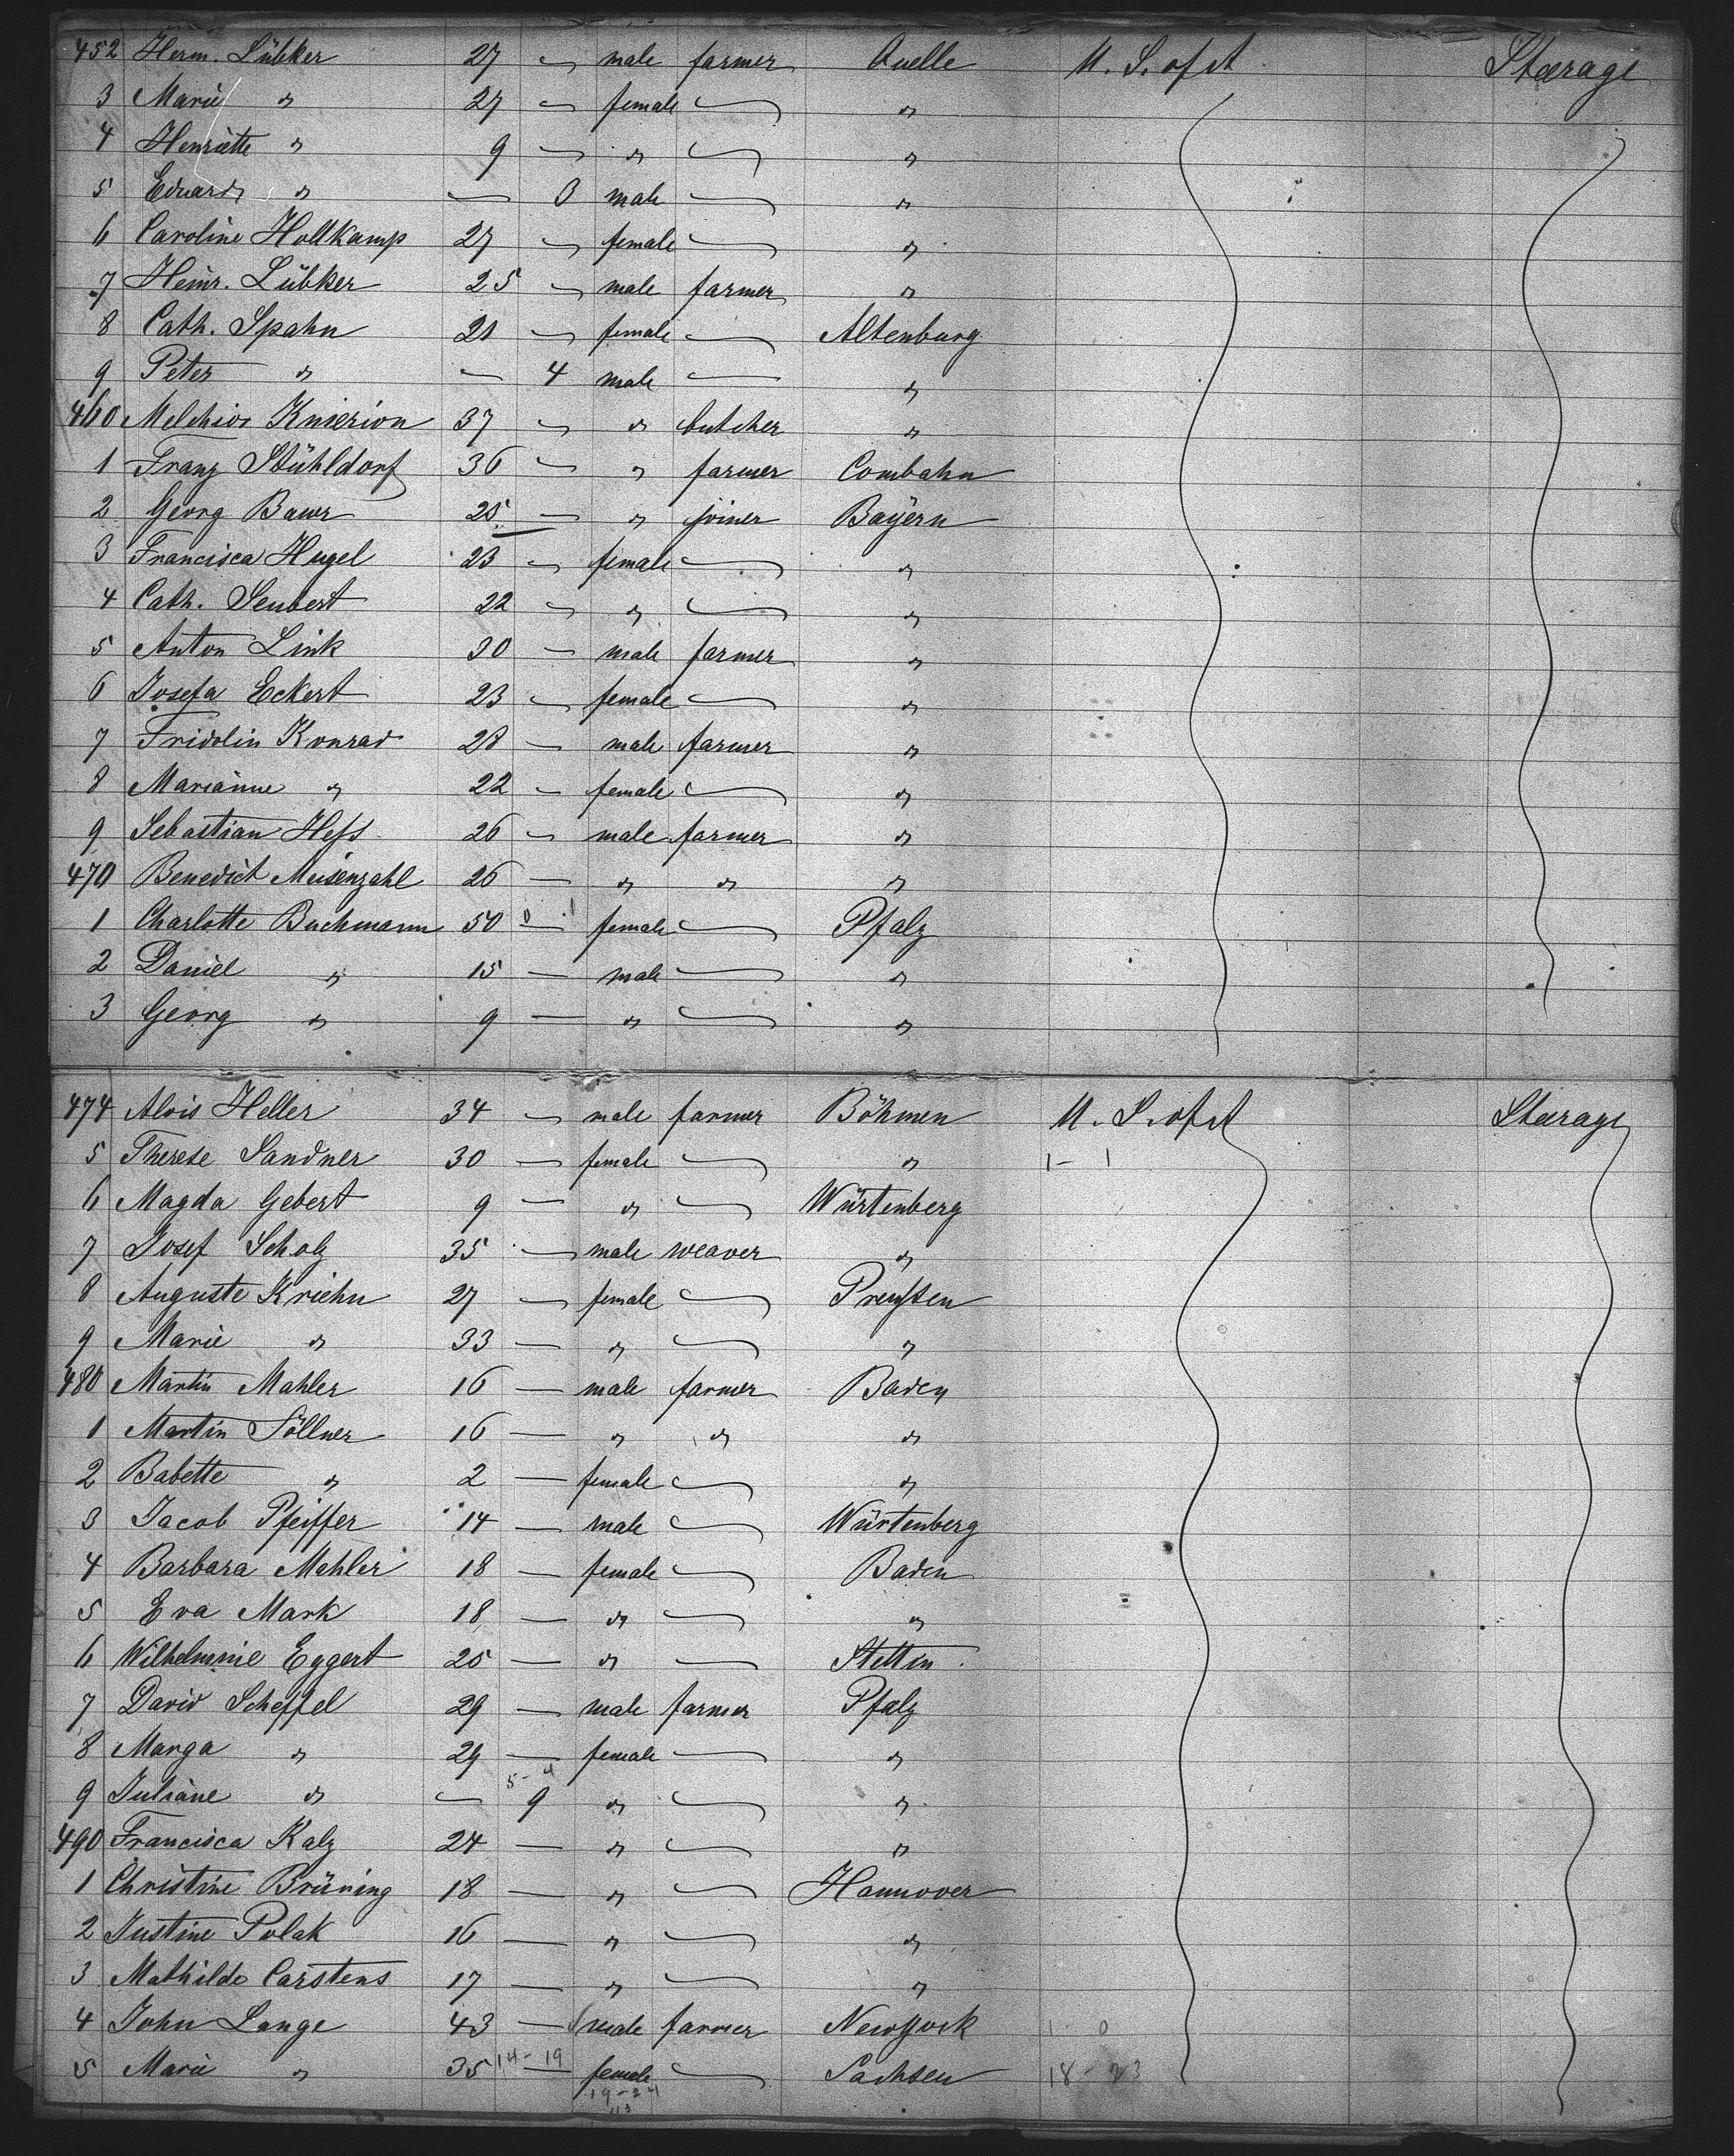 452 Herm. Lübker 27 — male farmer Quelle U. S. of A Steerage
3 Marie " 27 — female — "
4 Henriette " 9 — " — "
5 Eduard " — 3 male — "
6 Caroline Hollkamp 27 — female — "
7 Heinr. Lübker 25 — male farmer "
8 Cath. Spahn 21 — female — Altenburg
9 Peter " — 4 male — "
460 Melchior 37 — " butcher "
1 Franz Stühldorf 36 — " farmer Combahn
2 Georg Bauer 25 — " joiner Bayern
3 Francisca Hugel 23 — female — "
4 Cath. Seubert 22 — " — "
5 Anton Link 30 — male farmer "
6 Josefa Eckert 23 — female — "
7 Fridolin Konrad 28 — male farmer "
8 Marianne " 22 — female — "
9 Sebastian Heß 26 — male farmer "
470 Benedict Meisenzahl 26 — " " "
1 Charlotte Buchmann 50 — female — Pfalz
2 Daniel " 15 — male — "
3 Georg " 9 — " — "
474 Alois Heller 34 — male farmer Böhmen U. S. of A Steerage
5 Therese Sandner 30 — female — " 1 - 1
6 Magda Gebert 9 — " — Würtenberg
7 Josef Scholz 35 — male weaver "
8 Auguste Kriehn 27 — female — Preußen
9 Marie " 33 — " — "
480 Martin Mahler 16 — male farmer Baden
1 Martin Söllner 16 — " " "
2 Babette " 2 — female — "
3 Jacob Pfeiffer 14 — male — Würtenberg
4 Barbara Mahler 18 — female — Baden
5 Eva Mark 18 — " — "
6 Wilhelmine Eggert 25 — " — Stettin
7 David Scheffel 29 — male farmer Pfalz
8 Marga " 29 — female — "
5 - 4
9 Juliane " — 9 " — "
490 Francisca Kalz 24 — " — "
1 Christine Brüning 18 — " — Hannover
2 Justine Polak 16 — " — "
3 Mathilde Carstens 17 — " — "
4 John Lange 43 — male farmer Newyork 1 - 0
5 Marie " 35 14 - 19 — female — Sachsen 18 - 23
19 - 24